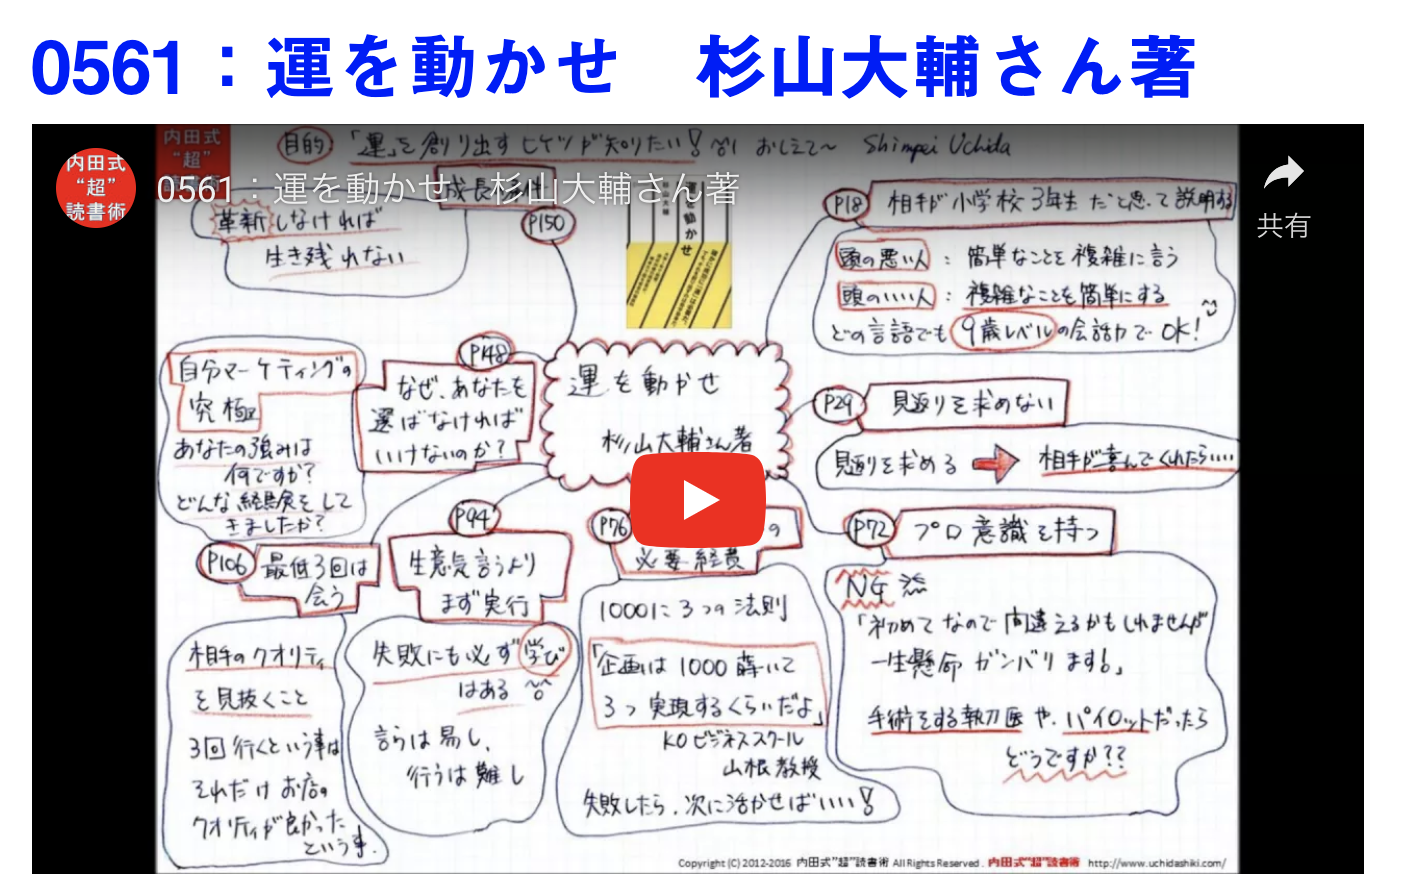 0561：運を動かせ　杉山大輔さん著
内田式
“超”
読書術
0561：運を動かせ　杉山大輔さん著
共有
内田式
“超”
目的 「運」を創り出すヒケツが知りたい! おしえて〜 Shimpei Uchida
P150
革新しなければ
生き残れない
運を動かせ
杉山大輔
P18 相手が小学校3年生だと思って説明する
頭の悪い人：簡単なことを複雑に言う
頭のいい人：複雑なことを簡単にする
どの言語でも9歳レベルの会話力でOK!
P148
なぜ、あなたを
選ばなければ
いけないのか?
自分マーケティングの
究極
あなたの強みは
何ですか?
どんな経験をして
きましたか?
運を動かせ
杉山大輔さん著
P29 見返りを求めない
見返りを求める ➡ 相手が喜んでくれたら‥‥
P106 最低3回は
会う
相手のクオリティ
を見抜くこと
3回行くという事は
それだけお店の
クオリティが良かった
という事.
P94
生意気言うより
まず実行
失敗にも必ず学び
はある
言うは易し、
行うは難し
P76 の
必要経費
1000に3つの法則
「企画は1000蒔いて
3つ実現するくらいだよ」
KOビジネススクール
山根教授
失敗したら、次に活かせばいい!
P72 プロ意識を持つ
NG
「初めてなので間違えるかもしれませんが
一生懸命ガンバリます!」
手術をする執刀医や、パイロットだったら
どうですか??
Copyright (C) 2012-2016 内田式”超”読書術 All Rights Reserved. 内田式”超”読書術 http://www.uchidashiki.com/